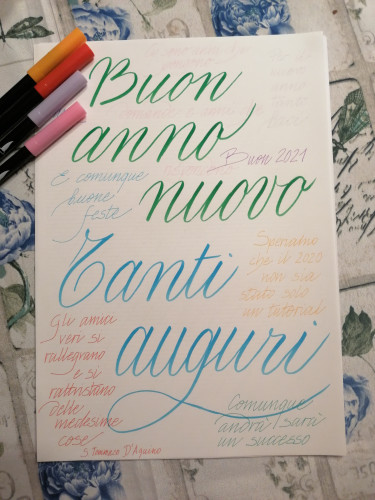 Buon
anno
nuovo
Buon 2021
E comunque
buone
feste
Tanti
auguri
Speriamo
che il 2020
non sia
stato solo
un tutorial
Gli amici
veri si
rallegrano
e si
rattristano
delle
medesime
cose
S. Tommaso D'Aquino
Comunque
andrà/sarà
un successo